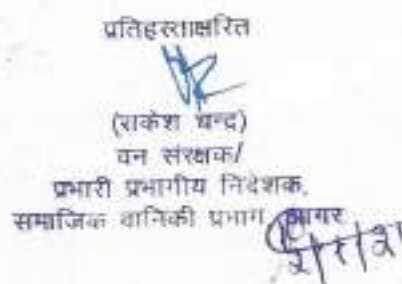 प्रतिहस्ताक्षरित
(राकेश चन्द्र)
वन संरक्षक/
प्रभारी प्रभागीय निदेशक,
समाजिक वानिकी प्रभाग